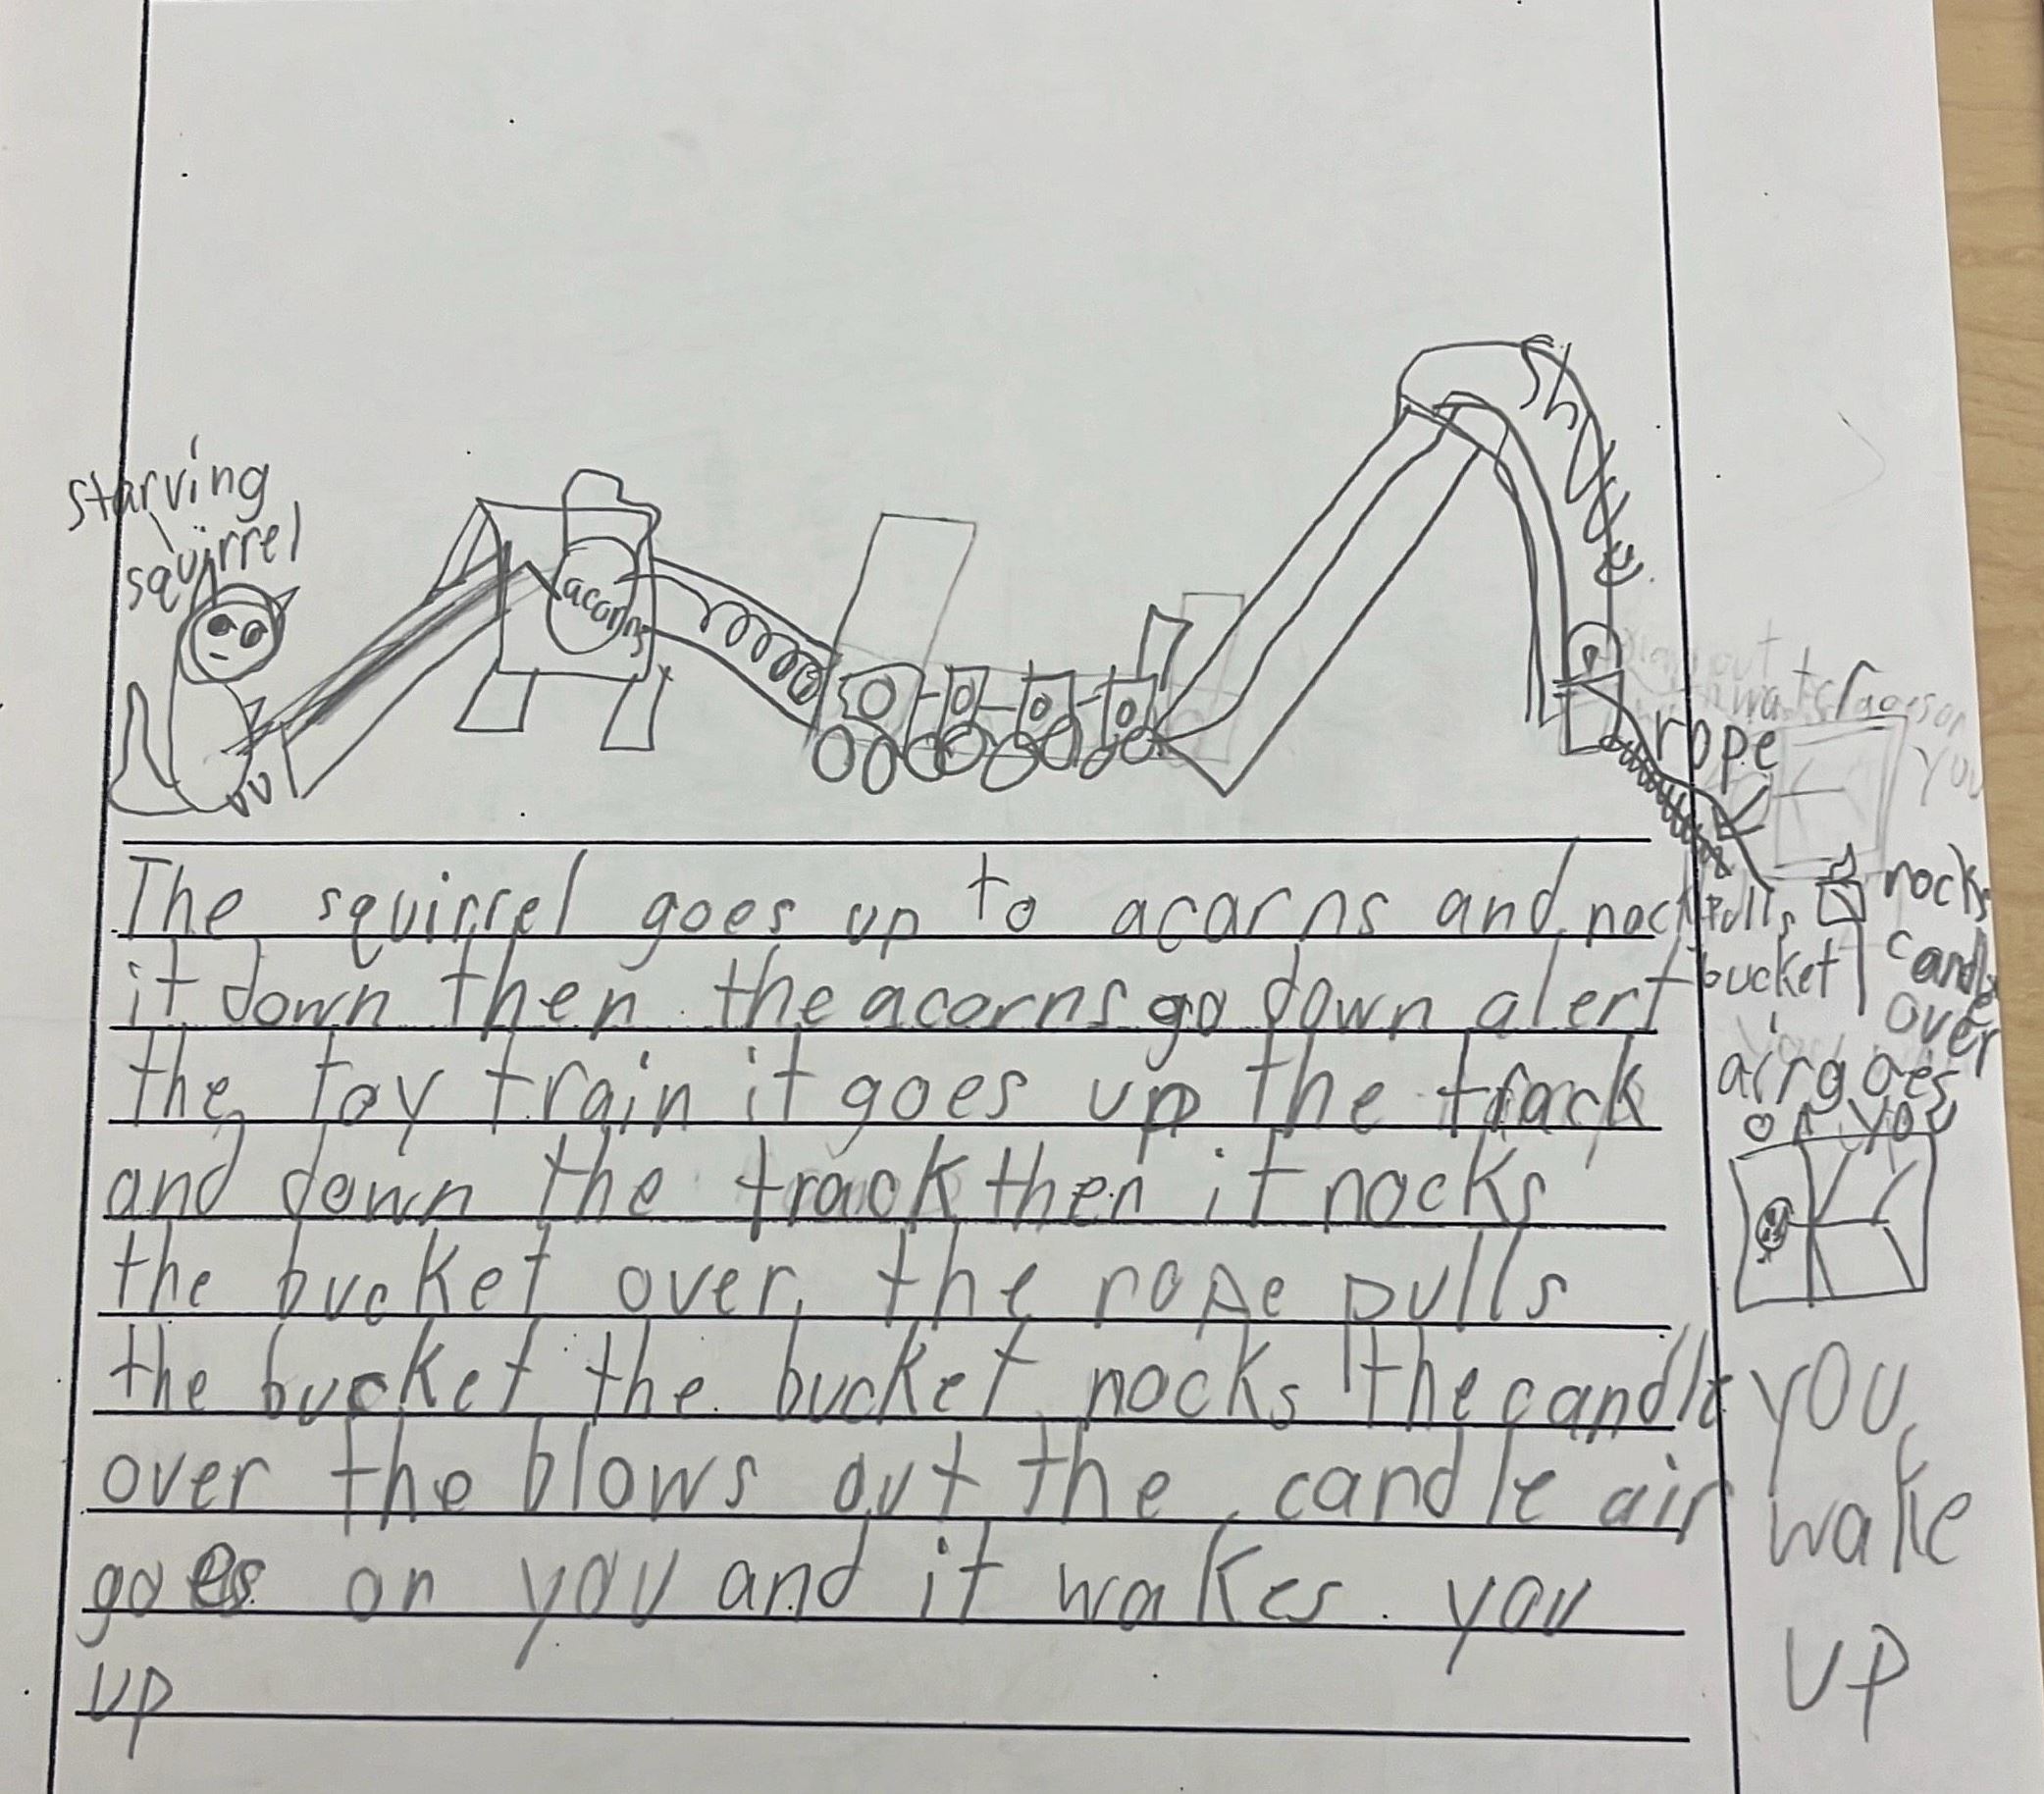 starving
squirrel
acorns
rope
pulls
bucket
nocks
candle
over
air goes
on you
you
wake
up
The squirrel goes up to acarns and nock
it down then the acorns go down alert
the toy train it goes up the track
and down the track then it nocks
the bucket over, the rope pulls
the bucket the bucket nocks the candle
over the blows out the candle air
goes on you and it wakes you
up